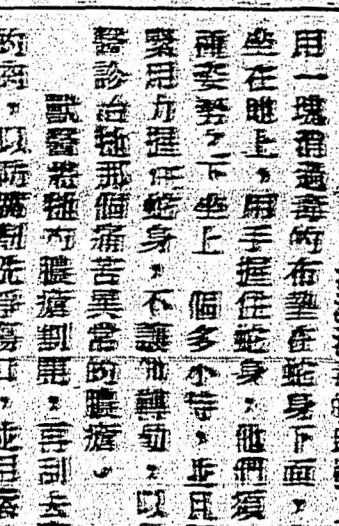 用一塊消過毒的布墊在蛇身下面，
坐在地上，用手握住蛇身，他們須
兩姿勢，下坐上 個多小時，並且
緊用力握住蛇身，不讓他轉動，以
醫診治牠那個痛苦異常的膿瘡。
獸醫將牠的膿瘡割開，再割去
的 ，以防 劑洗淨傷口，並用